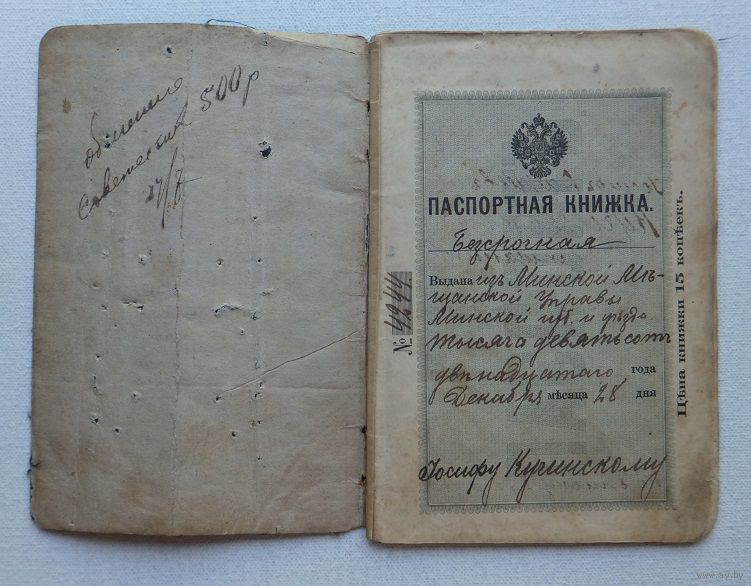 обменено
Советскими 500 р
17/X
ПАСПОРТНАЯ КНИЖКА.
Безсрочная
Выдана изъ Минской Мѣ-
щанской Управы
Минской губ. и уѣзда.
тысяча девятьсотъ
двѣнадцатаго года
Декабря мѣсяца 28 дня
Іосифу Кучинскому
№ 4244
Цѣна книжки 15 копѣекъ.
www.ay.by